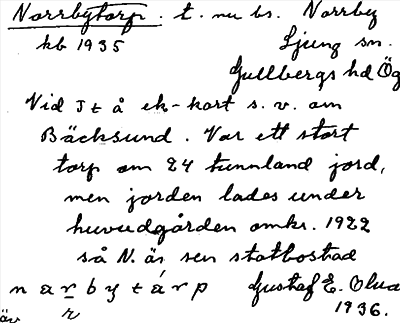 Norrbytorp. t. nu bs. Norrby
kb 1935 Ljung sn.
Gullbergs hd Ög
Vid Jt å ek-kart s. v. om
Bäcksund. Var ett stort
torp om 24 tunnland jord,
men jorden lades under
huvudgården omkr. 1922
så N. är sen statbostad
narbytárp Gustaf E.
äv r 1936.